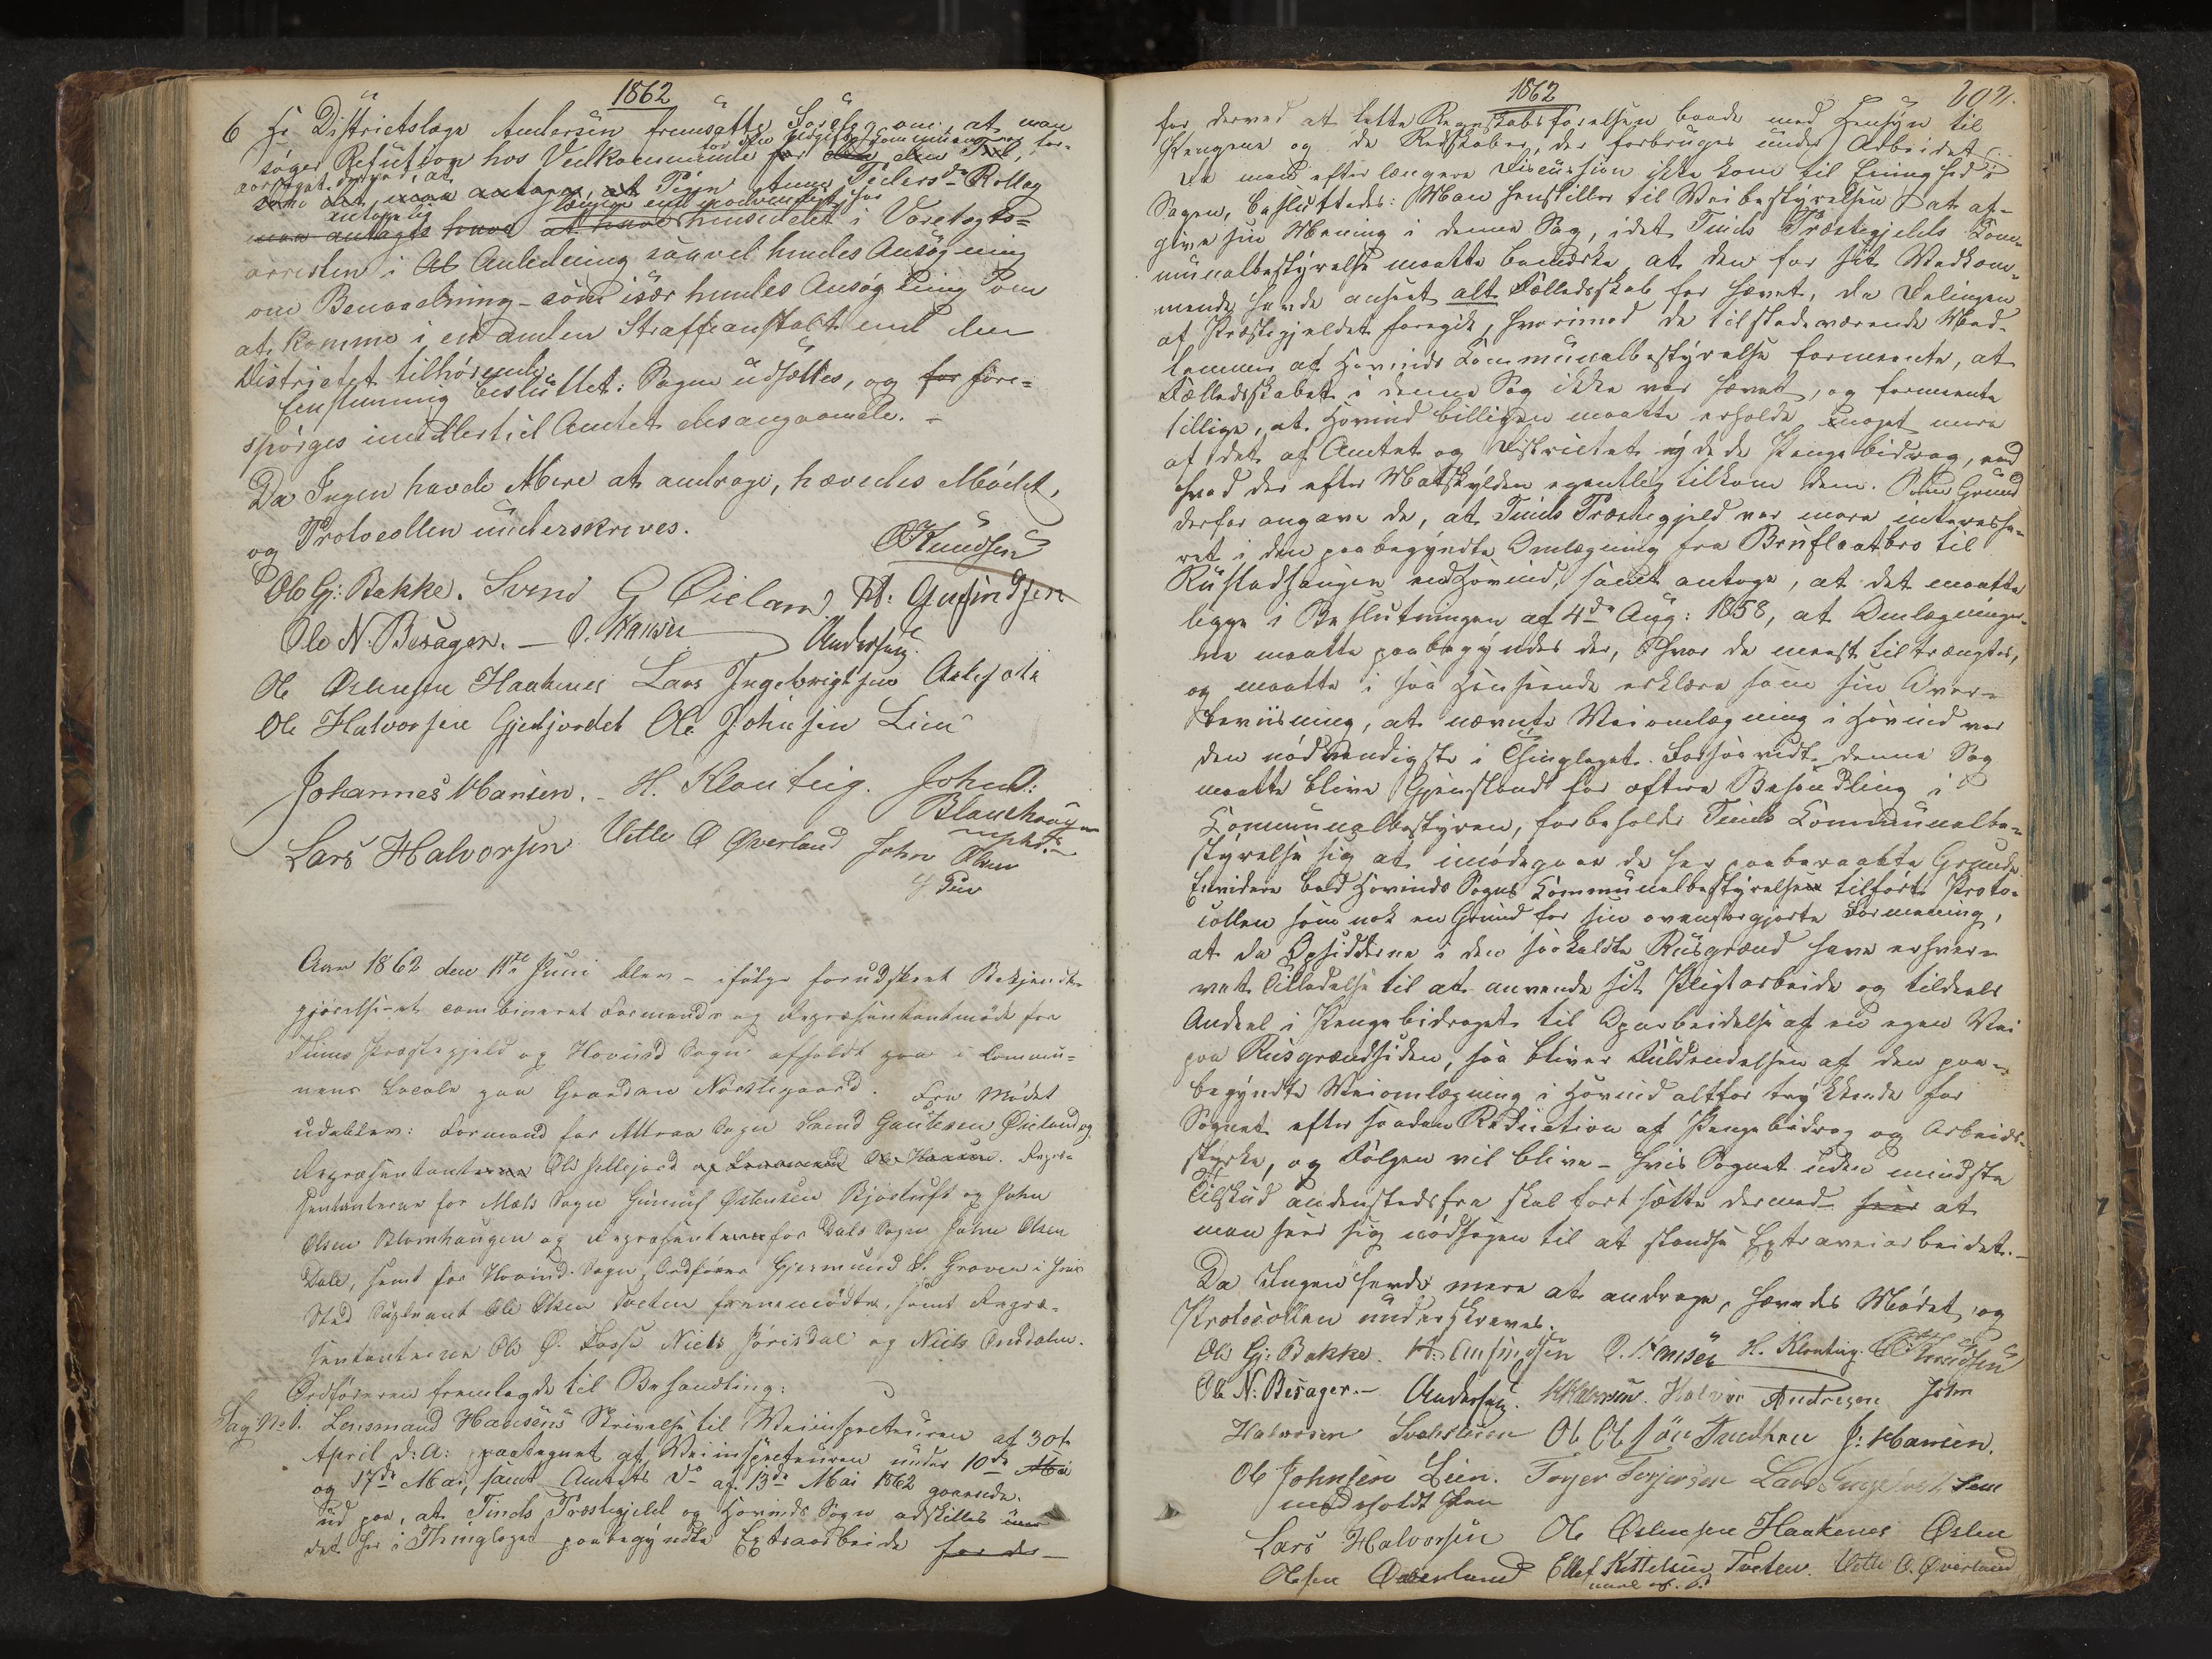 1862
6 Hr Districtslæge Andersen fremsatte Forslag om, at man
søger Refution hos Vedkommende for den
Anne Peders Dr Rollag
længere end nødvendigt har
hensiddet i Varetægts-
arresten i Anledning saavel hendes Ansøgning
om Benaadning - som især hendes Ansøgning om
at komme i en anden Straffeanstalt end den
Districtet tilhørende.
Eenstemmig besluttet: Sagen udsættes, og for fore-
spørges imidlertid Amtet desangaaende. -
Da Ingen havde Mere at andrage, hævedes Mødet,
og Protocollen underskrives.
OKnudsen
Ole Gj: Bakke. Svend G Øieland.
Ole N. Besager. - O. Hansen Andersen
Ole Østensen Haakenes Lars Ingebrigtsen
Ole Halvorsen Gjedjordet Ole Johnsen Lien
Johannes Hansen. - H. Klonteig. John O:
Blaashaugen
Lars Halvorsen Vetle O Øverland John Olsen
Aar 1862 den 11te Juni blev - ifølge forudskeet Bekjendt-
gjørelse - et combineret Formands og Repræsentantmøde for
Tinns Præstegjeld og Hovind Sogn afholdt paa i Commu-
nens Locale paa Gaarden Nørstegaard. Fra Mødet
udeblev: Formand for Attraa Sogn Svend Gautesen Øieland og
Repræsentanterne Ole
sentanterne for Mæls Sogn Gunnuf Østensen Bjørtuft og John
Olsen Blomhaugen og Repræsentanten for Dals Sogn John Olsen
Dale, samt for Hovind Sogn, Ordfører Gjermund S. Graven i hvis
Sted Supleant Ole Olsen Tveten fremmødte, samt Repræ-
sentanterne Ole Ø. Fosse Niels Jørisdal og Niels Ørsdalen.
Ordføreren fremlagde til Behandling:
Sag No 1. Lensmand Hansens Skrivelse til Veiinspecteuren af 30te
April d: A: paategnet af Veiinspecteuren under 10de Mai
og 17de Mai, samt Amtets Do af 13de Mai 1862 gaaende
ud paa, at Tinds Præstegjeld og Hovinds Sogn adskilles
det her i Thinglaget paabegyndte Extraarbeide for der-
1862
for derved at lette Regnskabsførelsen baade med Hensyn til
Pengene og de Redskaber, der forbruges under Arbeidet.
Da man efter længere Discussion ikke kom til Enighed i
Sagen, besluttedes: Man henstiller til Veibestyrelsen at af-
give sin Mening i denne Sag, idet Tinds Præstegjelds Com-
munalbestyrelse maatte bemærke, at den for sit Vedkom-
mende havde anseet alt Fælledsskab for hævet, da Delingen
af Præstegjeldet foregik, hvorimod de tilstedeværende Med-
lemmer af Hovinds Communalbestyrelse formeente, at
Fælledsskabet i denne Sag ikke var hævet, og formeente
tillige, at Hovind billigen maatte erholde noget mere
af det af Amtet og Districtet ydede Pengebidrag, end
hvad der efter Matskylden egentlig tilkom dem. Som Grund
derfor angave de, at Tinds Præstegjeld var mere interesse-
ret i den paabegyndte Omlægning fra Brufloatbro til
Rustadhaugen ved Hovind, samt antoge, at det maatte
ligge i Beslutningen af 4de Aug: 1858, at Omlægninger-
ne maatte paabegyndes der, hvor de meest tiltrængtes,
og maatte i saa Henseende erklære som sin Over-
beviisning, at nævnte Veiomlægning i Hovind var
den nødvendigste i Thinglaget. Forsaavidt denne Sag
maatte blive Gjenstand for oftere Behandling i
Communalbestyren, forbeholdt Tinds Communalbe-
styrelse sig at imødegaae de her paaberaabte Grunde.
Envidere bad Hovinds Sogns Communalbestyrelse tilført Proto-
collen som nok en Grund for sin ovenforgjorte Formening,
at da Opsidderne i den saakaldte Rusgrænd have erhver-
vet Tilladelse til at anvende sit Pligtarbeide og tildeels
Andeel i Pengebidraget til Oparbeidelse af en egen Vei
paa Rusgrændsiden, saa bliver Fuldendelsen af den paa-
begyndte Veiomlægning i Hovind altfor trykkende for
Sognet efter saadan Reduction af Pengebidrag og Arbeids-
styrke, og Følgen vil blive - hvis Sognet uden mindste
Tilskud andenstedsfra skal fortsætte dermed - at
man seer sig nødsagen til at standse Extraveiarbeidet. -
Da Ingen havde mere at andrage, hævedes Mødet og
Protocollen underskreves.
Ole Gj: Bakke. O. Hansen H. Klonteig. OKnudsen
Ole N: Besager. - Andersen. Halvor Andresen John
Halvorsen J: Hansen.
Ole Johnsen Lien. Torjer Torjersen Lars
medholdt Pen
Lars Halvorsen Ole Østensen Haakenes Østen
Olsen Øverland Ellef Kittelsen Tveten. Vetle O. Øverland